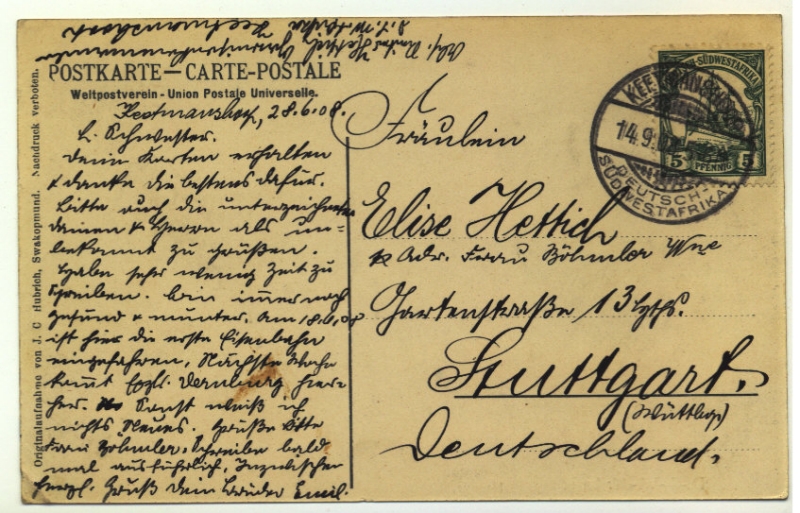 POSTKARTE — CARTE-POSTALE
Weltpostverein - Union Postale Universelle.
Keetmanshoop, 28.6.08.
L. Schwester.
Deine Karten erhalten
& danke dir bestens dafür.
Bitte auch die unterzeichneten
Damen & Herrn als un-
bekannt zu grüßen.
Habe sehr wenig Zeit zu
schreiben. Bin immer noch
gesund & munter. Am 18.6.08
ist hier die erste Eisenbahn
eingefahren, Nächste Woche
kommt Exzl. Dernburg hier-
her. Sonst weiß ich
nichts Neues. Grüße bitte
Frau Böhmler. Schreibe bald
mal ausführlich, Inzwischen
herzl. Gruß Dein Bruder Emil.
Abs.
Hettich
Keetmanshoop
D.S.W. Afrika
Originalaufnahme von J. C. Hubrich, Swakopmund. Nachdruck verboten.
Fräulein
Elise Hettich
Adr. Frau Böhmler Wwe
Gartenstraße 13
Stuttgart.
(Württbg)
Deutschland.
SÜDWESTAFRIKA
5 PFENNIG 5
KEETMANSHOOP
14.9.
DEUTSCH-
SÜDWESTAFRIKA